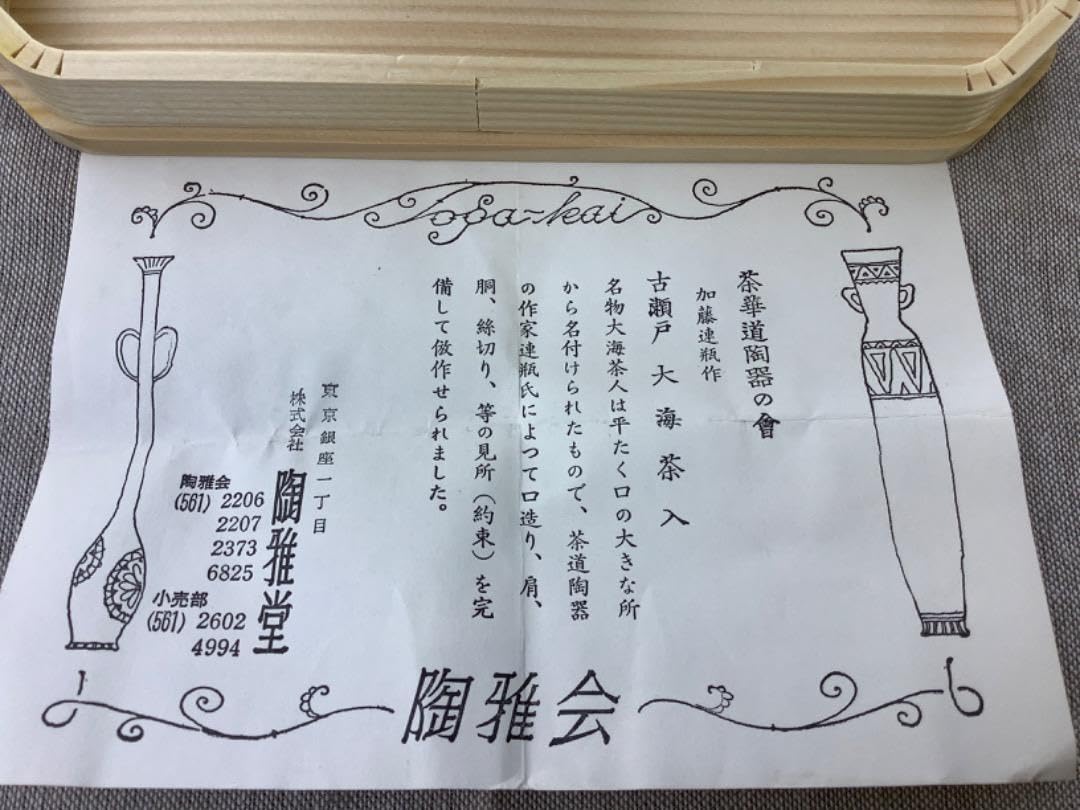 Toga-kai
茶華道陶器の會
加藤連瓶作
古瀬戸大海茶入
名物大海茶人は平たく口の大きな所
から名付けられたもので、茶道陶器
の作家連瓶氏によつて口造り、肩、
胴、絲切り、等の見所（約束）を完
備して倣作せられました。
東京銀座一丁目
株式会社
陶雅堂
陶雅会
(561) 2206
2207
2373
6825
小売部
(561) 2602
4994
陶雅会